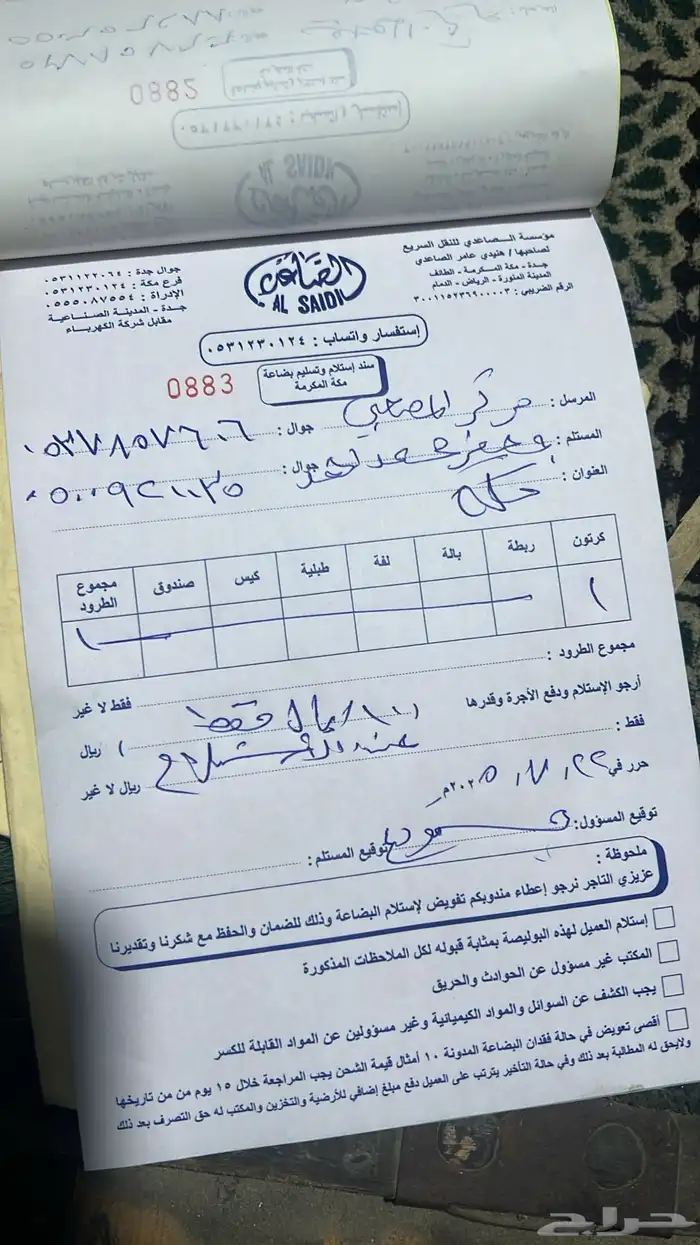 0882
AL SAIDI
مؤسسة الصاعدي للنقل السريع
لصاحبها / هنيدي عامر الصاعدي
جدة - مكة المكرمة - الطائف
المدينة المنورة - الرياض - الدمام
الرقم الضريبي : ٣٠٠١١٥٢٣٦٩٠٠٠٠٣
AL SAIDI
جوال جدة : ٠٥٣١١٢٢٠٦٤
فرع مكة : ٠٥٣١٢٣٠١٢٤
الإدراة : ٠٥٥٥٠٨٧٥٥٤
جدة - المدينة الصناعية
مقابل شركة الكهرباء
إستفسار واتساب : ٠٥٣١٢٣٠١٢٤
سند إستلام وتسليم بضاعة
مكة المكرمة
0883
المرسل : مركز جوال : ٠٥٣٧٨٥٧٦٠٦
المستلم : محمد جوال :
العنوان : مكه
كرتون ربطة بالة لفة طبلية كيس صندوق مجموع الطرود
١ ١
مجموع الطرود : فقط لا غير
أرجو الإستلام ودفع الأجرة وقدرها ( ريال فقط ) ريال
فقط : عند الاستلام ريال لا غير
حرر في ٢٢ / ٧ / ٢٠٢٥م
توقيع المسؤول : توقيع المستلم :
ملحوظة :
عزيزي التاجر نرجو إعطاء مندوبكم تفويض لإستلام البضاعة وذلك للضمان والحفظ مع شكرنا وتقديرنا
إستلام العميل لهذه البوليصة بمثابة قبوله لكل الملاحظات المذكورة
المكتب غير مسؤول عن الحوادث والحريق
يجب الكشف عن السوائل والمواد الكيميائية وغير مسؤولين عن المواد القابلة للكسر
أقصى تعويض في حالة فقدان البضاعة المدونة ١٠ أمثال قيمة الشحن يجب المراجعة خلال ١٥ يوم من من تاريخها
ولايحق له المطالبة بعد ذلك وفي حالة التأخير يترتب على العميل دفع مبلغ إضافي للأرضية والتخزين والمكتب له حق التصرف بعد ذلك
حراج